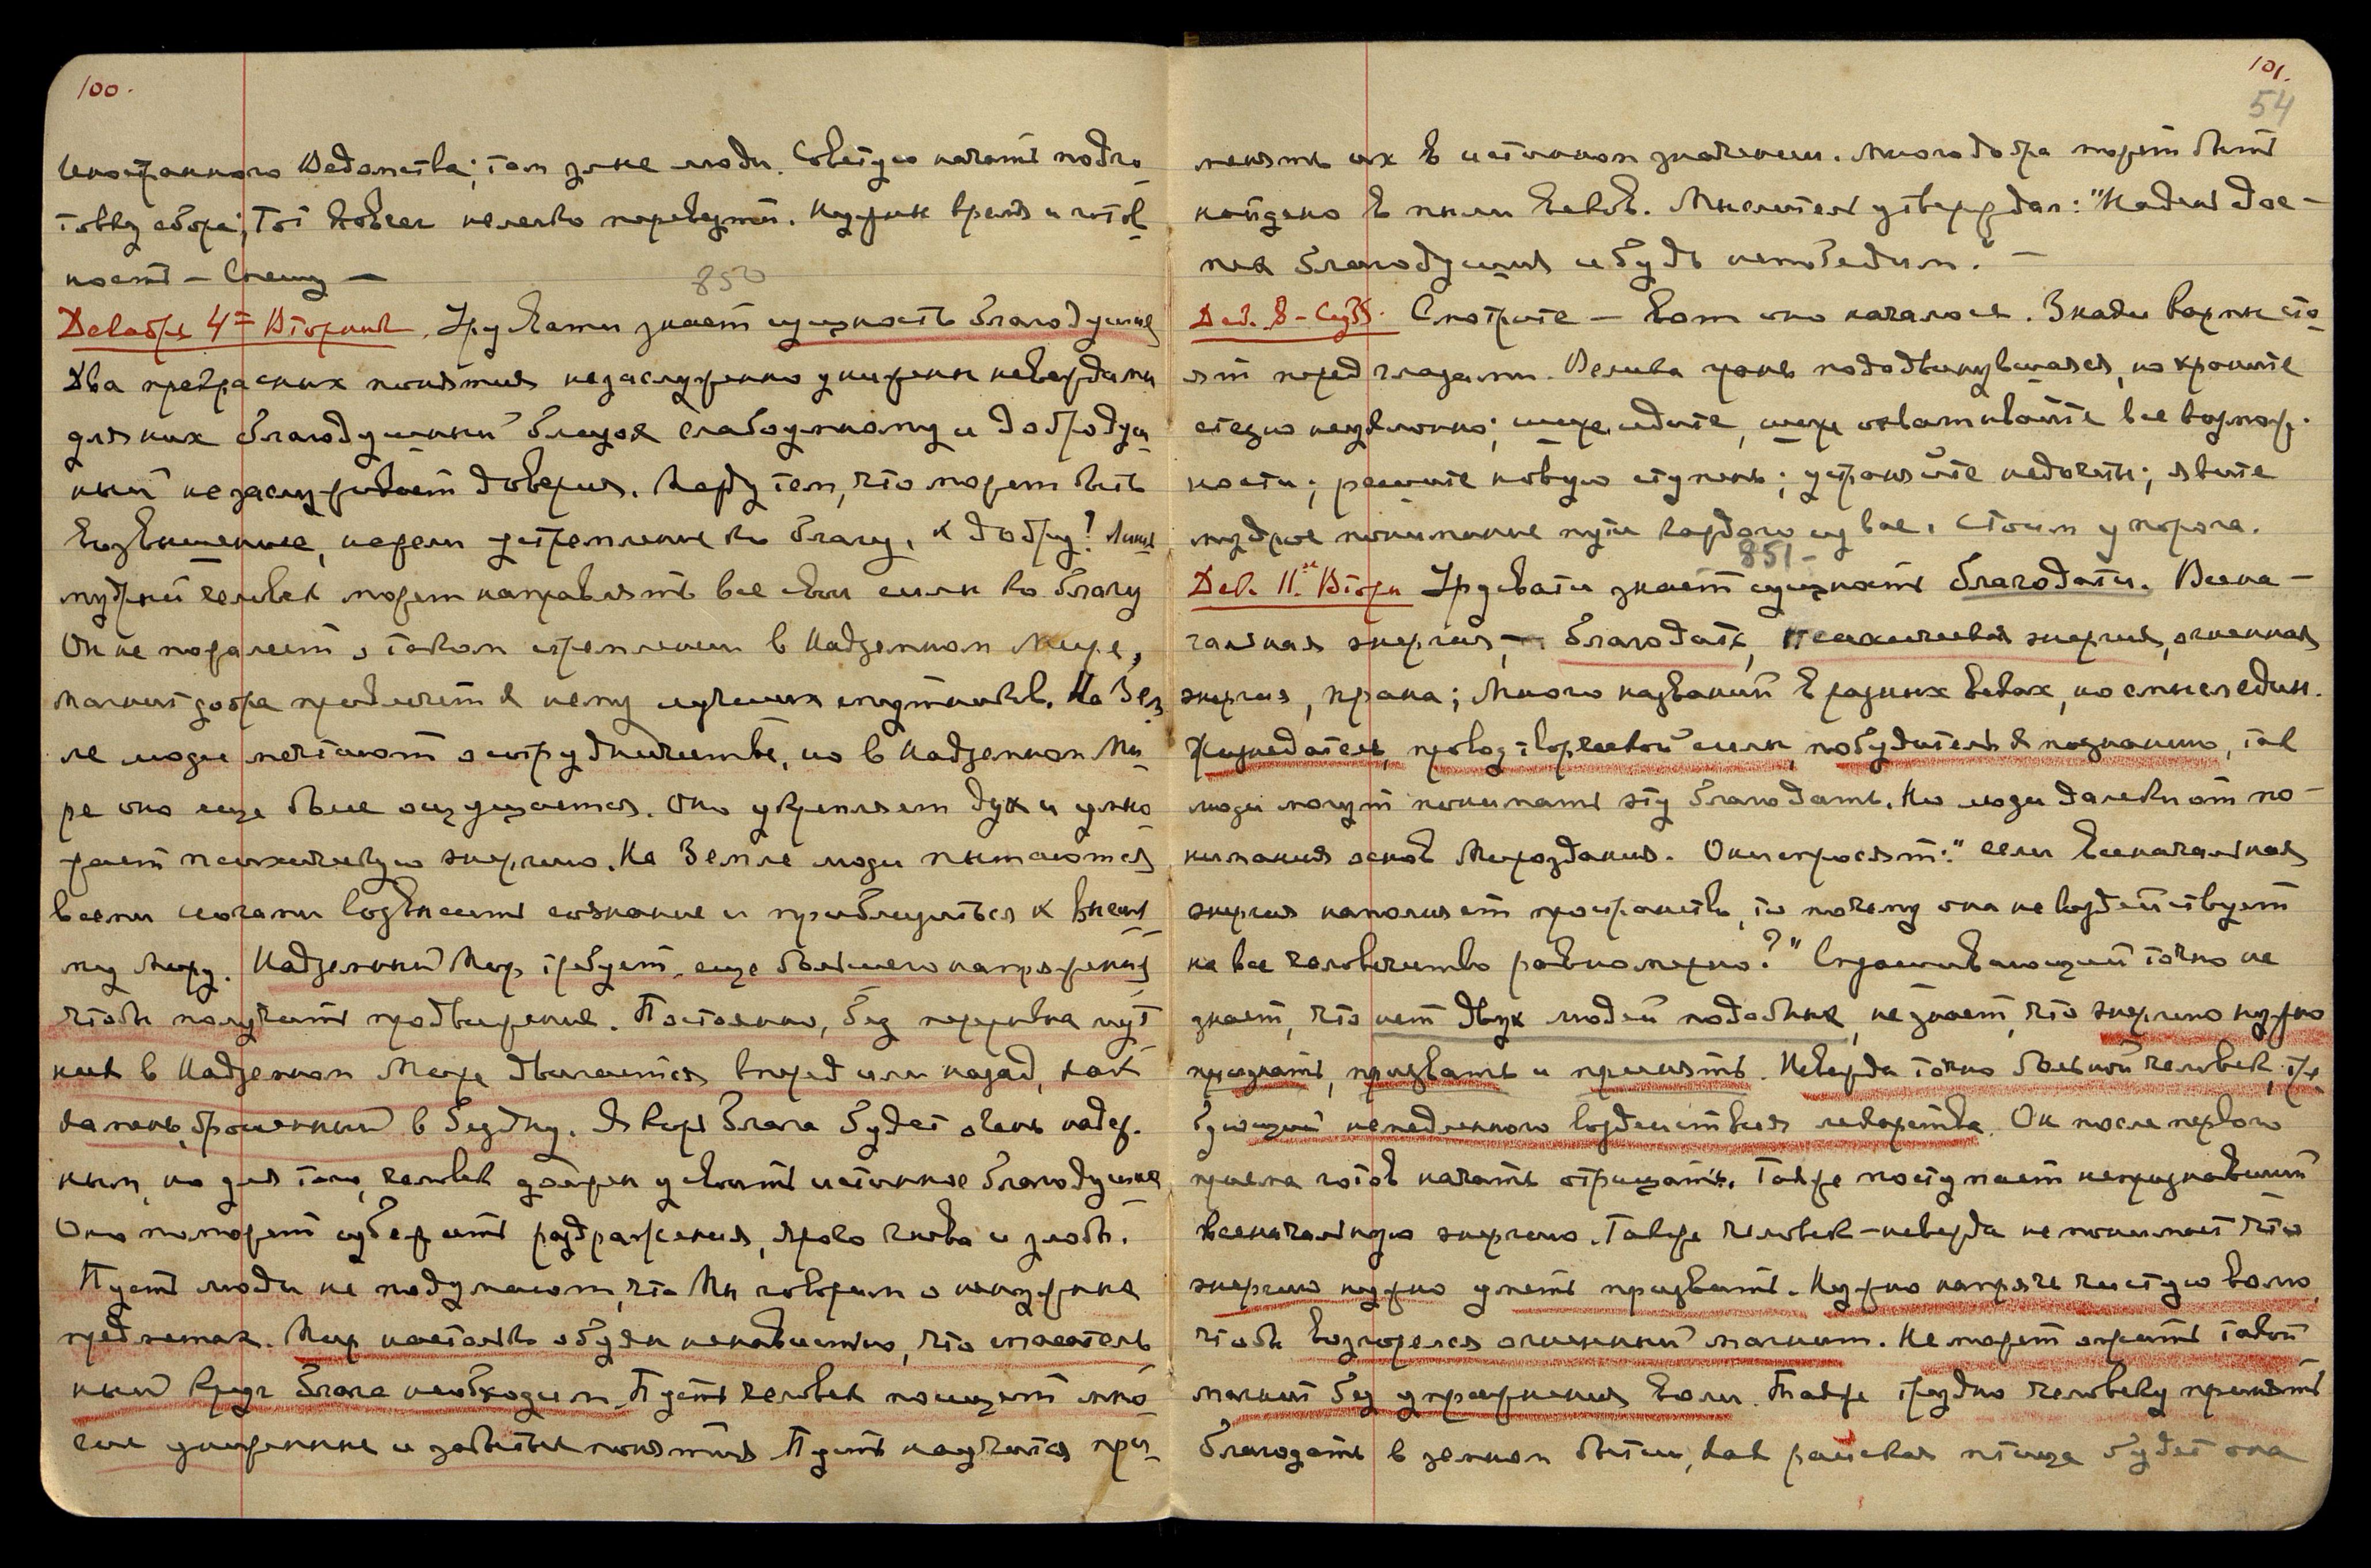 100.
Иностранного Ведомства; там злые люди. Советую начать подго-
товку сбора; Тот Ковчег нелегко перевезти. Нужны время и готов-
ность – Спешу –
850
Декабря 4ое Вторник. Урусвати знает сущность благодушия
Два прекрасных понятия незаслуженно унижены невеждами
для них благодушный близок слабоумному и добродуш-
ный не заслуживает доверия. Между тем, что может быть
возвышеннее, нежели устремление ко благу, к добру? Лишь
мудрый человек может направлять все свои силы ко благу
Он не пожалеет о таком стремлении в Надземном Мире,
магнит добра привлечет к нему лучших спутников. На Зем-
ле люди мечтают о сотрудничестве, но в Надземном Ми-
ре оно еще более ощущается. Оно укрепляет дух и умно-
жает психическую энергию. На Земле люди пытаются
всеми мерами возвысить сознание и приблизиться к Высш-
му Миру. Надземный Мир требует еще большего напряжения
чтобы получить продвижение. Постоянно, без перерыва пут-
ник в Надземном Мире двигается вперед или назад, как
камень, брошенный в бездну. Якорь Блага будет очень надеж-
ным, но для того, человек должен усвоить истинное благодушие
Оно поможет избежать раздражения, ярого гнева и злобы.
Пусть люди не подумают, что Мы говорим о ненужных
предметах. Мир настолько обуян ненавистью, что спаситель-
ный Круг Блага необходим. Пусть человек поищет мно-
гие униженные и забытые понятия Пусть научится при-
101.
54
менять их в истинном значении. Много добра может быть
найдено в пыли веков. Мыслитель утверждал: "Надень дос-
пех благодушия и будь непобедим." –
Дек. 8 – Субб. Смотрите – вот оно началось. Знаки важны сто-
ят перед глазами. Велика мощь пододвинувшаяся, но храните
стезю неуклонно; шире идите, шире охватывайте все возмож-
ности; решите новую ступень; устраняйте недочеты; явите
мудрое понимание пути каждого из вас. Стоим у порога.
851 –
Дек. 11ое Вторн Урусвати знает сущность благодати. Всена-
чальная энергия, – благодать, психическая энергия, огненная
энергия, прана; Много названий в разных веках, но смысл един.
Жизнедатель, провод творческой силы, побудитель к познанию, так
люди могут понимать эту благодать. Но люди далеки от по-
нимания основ Мироздания. Они спросят: "если всеначальная
энергия наполняет пространство, то почему она не воздействует
на все человечество равномерно?" Спрашивающий точно не
знает, что нет двух людей подобных, не знает, что энергию нужно
признать, призвать и принять. Невежда точно больной человек, тре-
бующий немедленного воздействия лекарства. Он после первого
приема готов начать отрицать. Также поступает непризнавший
всеначальную энергию. Также человек – невежда не понимает что
энергию нужно уметь призвать. Нужно напрячь чистую волю,
чтобы возгорелся огненный магнит. Не может ожить такой
магнит без упражнения воли. Также трудно человеку принять
благодать в земном бытии, как райская птица будет она